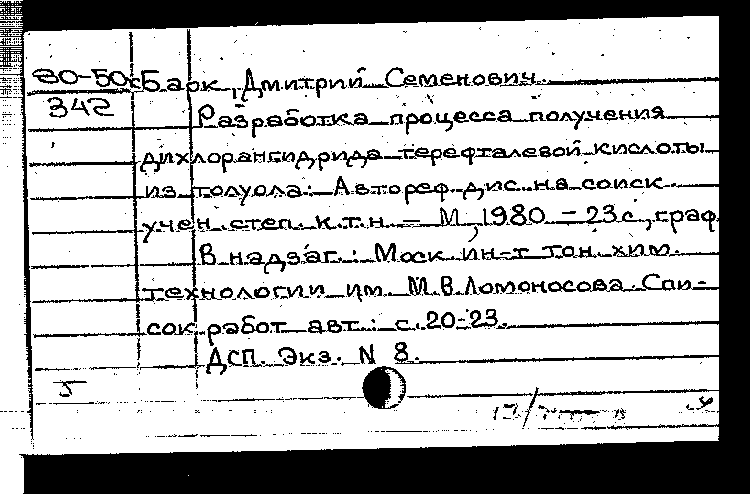 80-50к Барк, Дмитрий Семенович.
342 Разработка процесса получения
дихлорангидрида терефталевой кислоты
из толуола: Автореф. дис. на соиск.
учен. степ. к.т.н. – М, 1980 – 23с, граф
В надзаг.: Моск ин-т тон. хим.
технологии им. М.В.Ломоносова. Спи-
сок работ авт.: с.20-23.
ДСП. Экз. N 8.